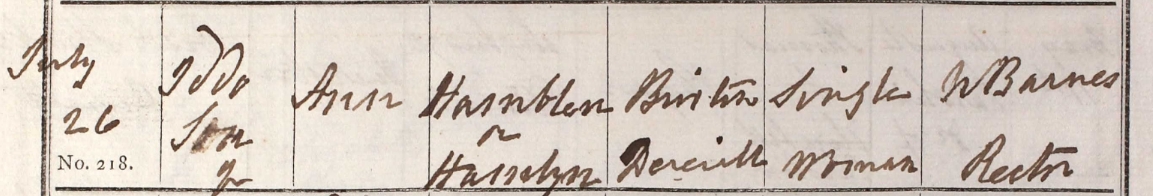 July
26
No. 218.
Iddo
Son
of
Ann
Hamblen
or
Hamelyn
Brixton
Dereill
Single
Woman
W Barnes
Rector